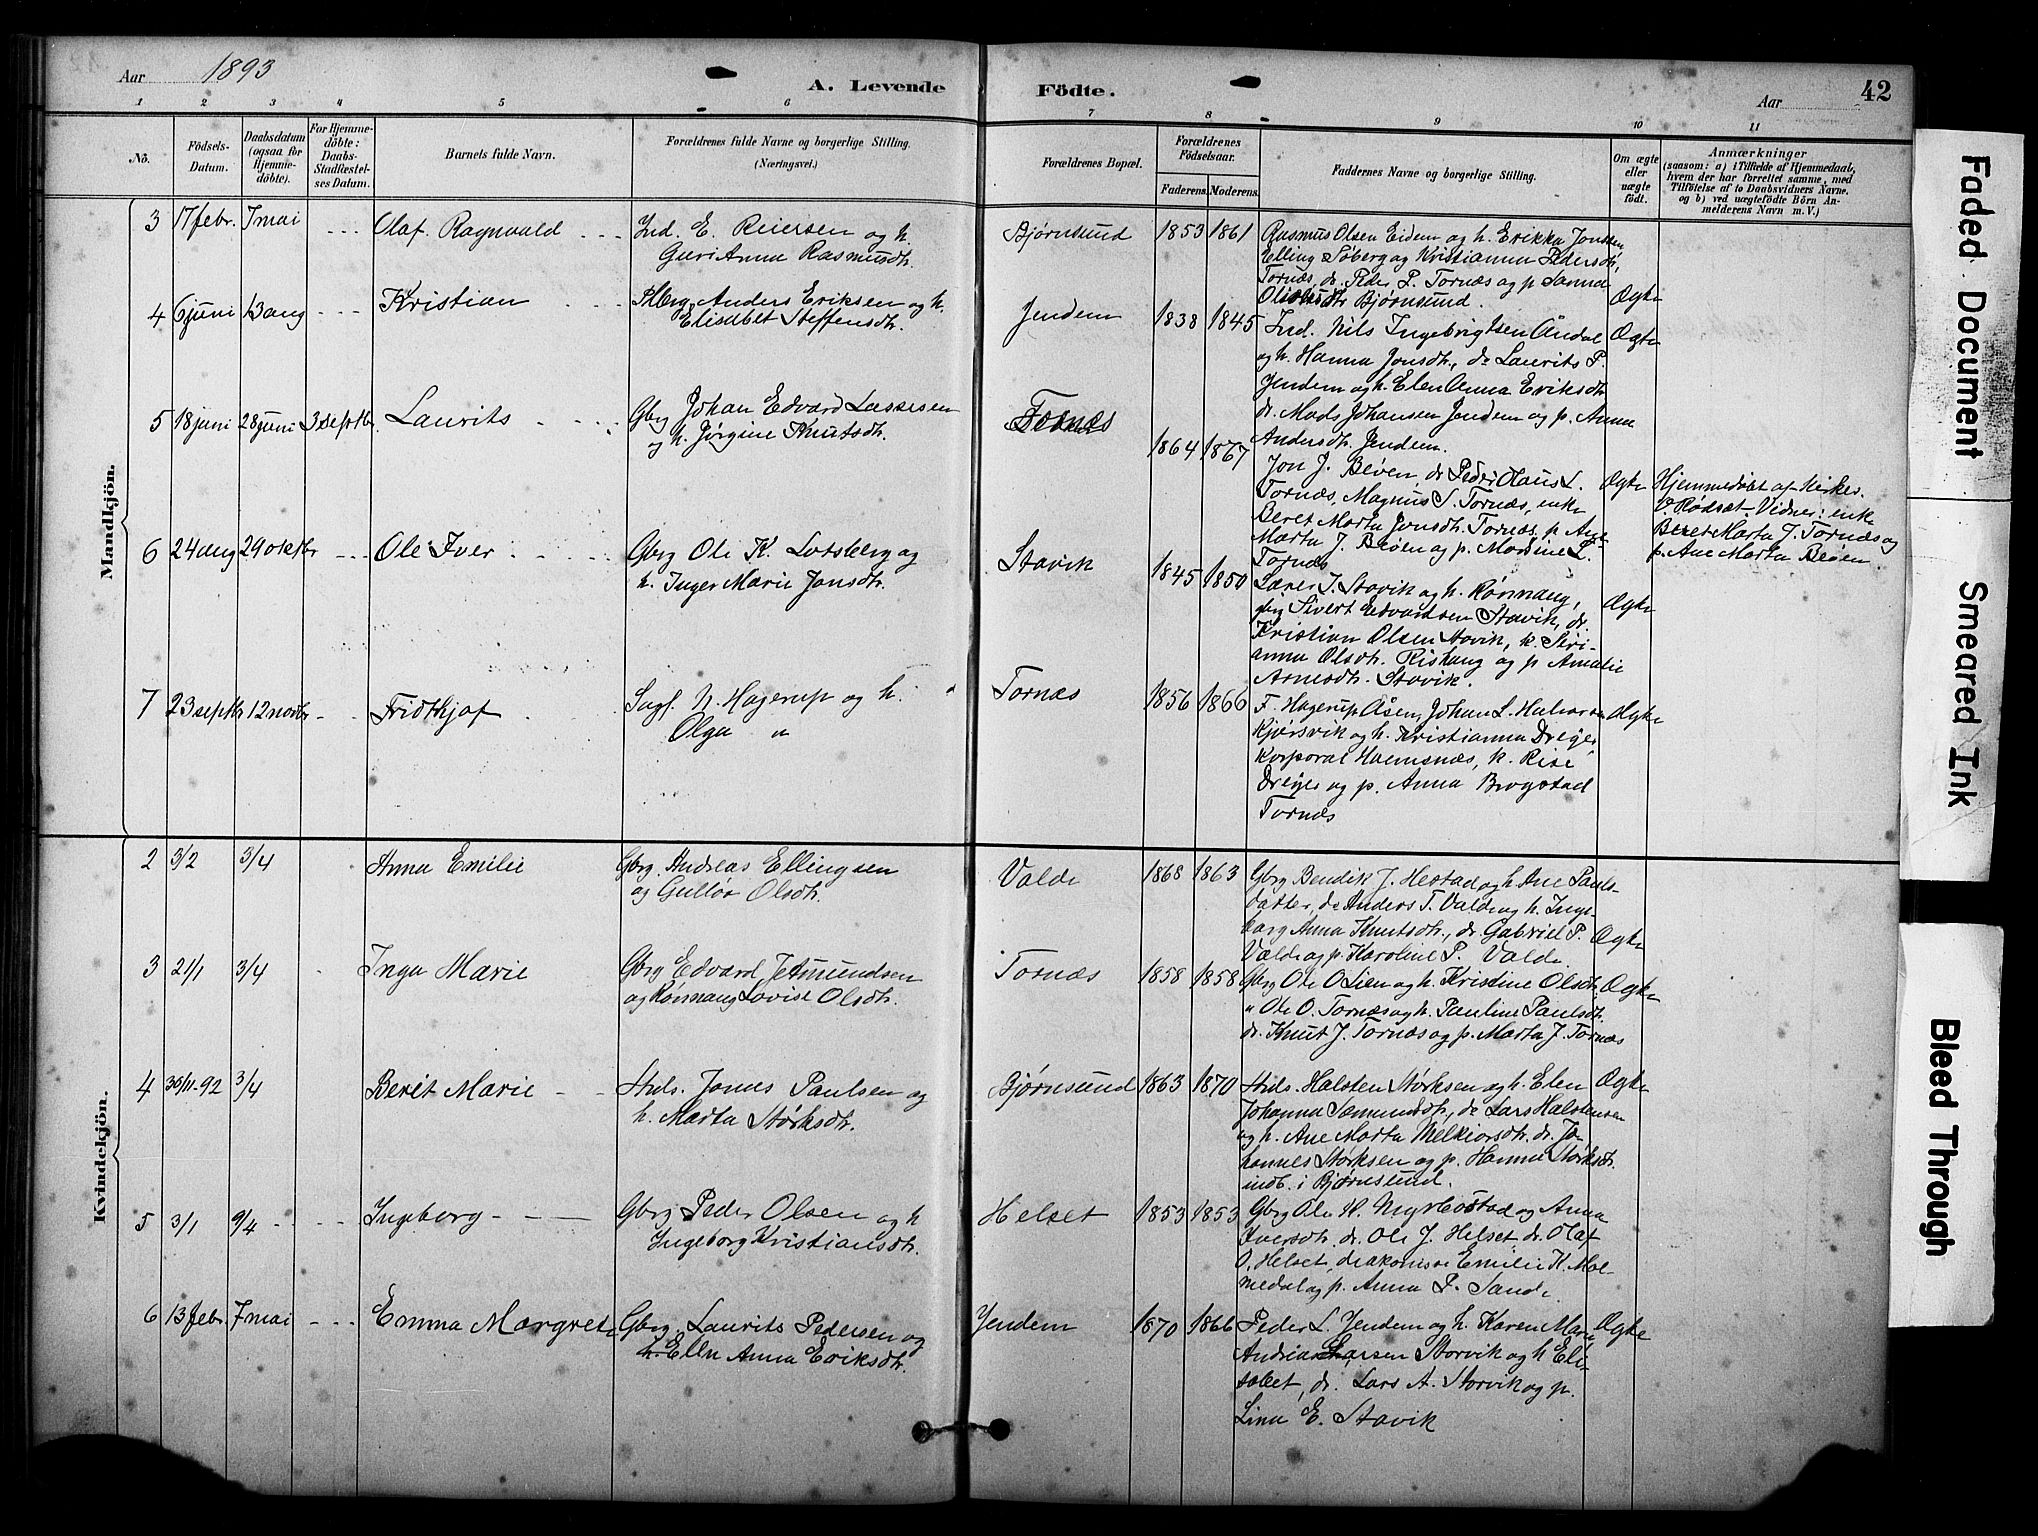 Aar 1893
A. Levende
Födte.
Aar
42
1 2 3 4 5 6 7 8 9 10 11
No.
Födsels-
Datum.
Daabsdatum
(ogsaa for
Hjemme-
döbte).
For Hjemme-
döbte:
Daabs-
Stadfæstel-
ses Datum.
Barnets fulde Navn.
Forældrenes fulde Navne og borgerlige Stilling.
(Næringsvei.)
Forældrenes Bopæl.
Forældrenes
Födselsaar.
Faderens. Moderens.
Faddernes Navne og borgerlige Stilling.
Om ægte
eller
uægte
født.
Anmærkninger
(saasom: a) i Tilfælde af Hjemmedaab,
hvem der har forrettet samme, med
Tilföielse af to Daabsvidners Navne,
og b) ved uægtefödte Börn An-
melderens Navn m. V.)
Mandkjön.
3 17 febr. 7 mai - - - Olaf Ragnvald - - - Ind. E. Reiersen og h.
Guri Anna Rasmusdtr.
Bjørnsund 1853 1861 Rasmus Olsen Eidem og h. Erikka Jonsdtr,
Elling Søberg og Kristianna Pedersdtr,
Tornæs, dr. Peder P. Tornæs og p Sanna
Bjørnsund. Ægte
4 6 juni 13 aug - - - Kristian - - - Anders Eriksen og h.
Elisabet Steffensdtr.
Jendem 1838 1845 Ind. Nils Ingebrigtsen Aandal Ægte
og h. Hanna Jonsdtr., do Laurits P.
Jendem og h. Elen Anna Eriksdtr
dr. Mads Johansen Jendem og p. Anna
Andersdtr. Jendem.
5 18 juni 28 juni 3 septbr. Laurits - - - Gbrg Johan Edvard Lassesen
og h. Jørgine Knutsdtr.
Tornæs 1864 1867
Jon J. Beøen, dr. Peder Claus L. Ægte
Tornæs, Magnus S. Tornæs, enke
Beret Marta Jonsdtr. Tornæs, p. Ane
Marta J. Beøen og p. Martine L.
Tornæs
Hjemmedøbt af Kirkes.
Rødset Vidner: enke
Beret Marta J. Tornæs og
p. Ane Marta Beøen.
6 24 aug 29 oktbr - - - Ole Iver - - - Gbrg Ole K. Lotsberg og
h. Inger Marie Jonsdtr.
Stavik 1845 1850 Lærer J. Stavik og h. Rønnaug,
gbrg Sivert Edvardsen Stavik, dr. Ægte
Kristian Olsen Stavik, k. Siri-
anna Olsdtr. Rishaug og p Amalie
Arnesdtr. Stavik.
7 23 septbr 12 novbr - - Fridthjof Sagf. N. Hagerup og h.
Olga "
Tornæs 1856 1866 F. Hagerup Åsen, Johan L. Halvorsen Ægte
Kjørsvik og h. Kristianna Dreyer
Korporal Harnsnæs, k. Risé
Dreyer og p. Anna Brogstad
Tornæs
Kvindekjön.
2 3/2 3/4 Anna Emilie Gbrg. Andreas Ellingsen
og Gulløv Olsdtr.
Valde 1868 1863 Gbrg Bendik J. Hestad og h. Ane Pauls-
datter, do Anders T. Valde og h. Inge-
borg Anna Knutsdtr., dr. Gabriel P. Ægte
Valde og p. Karoline P. Valde.
3 21/1 3/4 - Inga Marie Gbrg Edvard J. Amundsen
og Rønnaug Lovise Olsdtr.
Tornæs 1858 1858 Gbrg Ole O. Lien og h. Kristine Olsdtr, Ægte
" Ole O. Tornæs og h. Pauline Paulsdtr.
dr. Knut J. Tornæs og p. Marta J. Tornæs
4 30/11-92 3/4 Berit Marie - - Inds. Jonas Paulsen og
h. Marta Størksdtr.
Bjørnsund 1863 1870 Inds. Halsten Størksen og h. Elen Ægte
Johanna Sæmundsdtr., do Lars Halstensen
og h. Ane Marta Melkiorsdtr. dr. Jo-
hannes Størksen og p. Hanna Størksdtr.
indb. i Bjørnsund.
5 3/1 9/4 - - - Ingeborg - - - Gbrg Peder Olsen og h
Ingeborg Kristiansdtr.
Helset 1853 1853 Gbrg Ole H. Myrbostad og Anna
Iversdtr. dr. Ole J. Helset dr. Olaf
O. Helset, diakonisse Emilie K. Mal-
medal og p. Anna P. Sande.
6 13 febr. 7 mai - - - Emma Margrete Gbrg. Laurits Pedersen og
h. Elen Anna Eriksdtr.
Jendem 1870 1866 Peder L. Jendem og h. Karen Marie Ægte
Andrias Larsen Storvik og h Eli-
sabet, dr. Lars A. Storvik og p.
Lina E. Stavik
Faded Document
Smeared Ink
Bleed Through